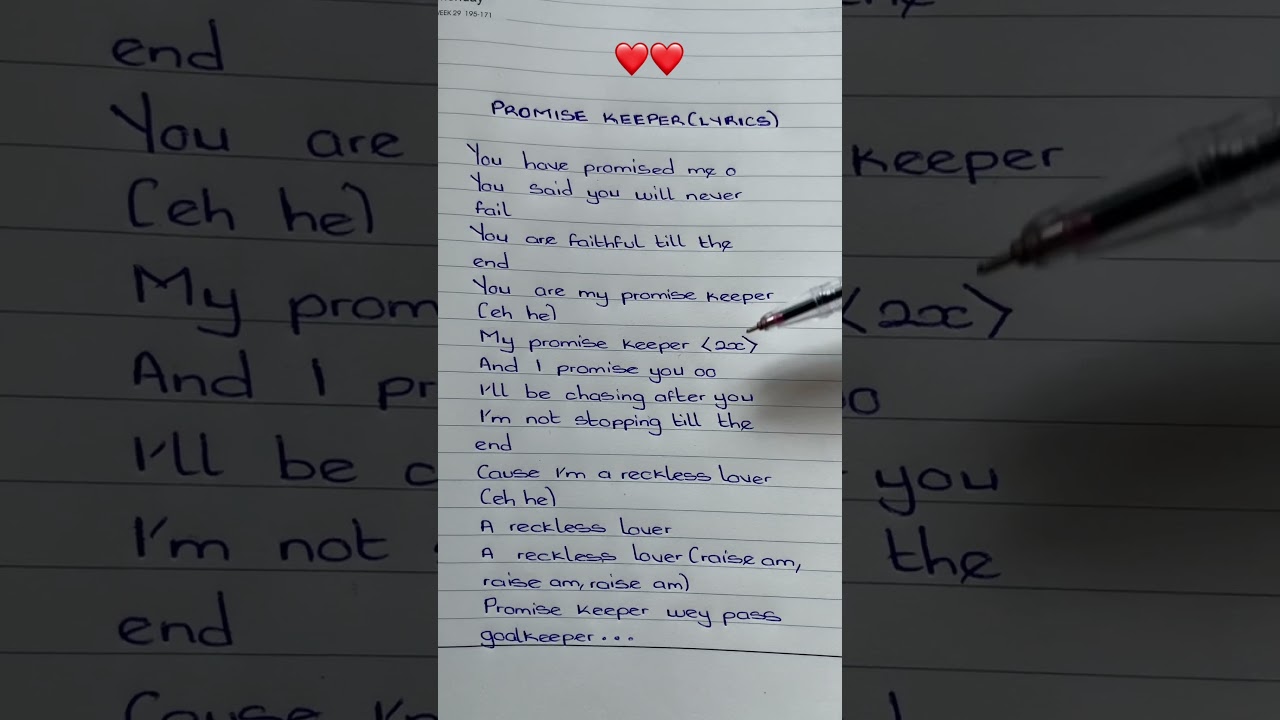 WEEK 29 195-171
PROMISE KEEPER(LYRICS)
You have promised me o
You said you will never
fail
You are faithful till the
end
You are my promise keeper
(eh he)
My promise keeper <2x>
And I promise you oo
I'll be chasing after you
I'm not stopping till the
end
Cause I'm a reckless lover
(eh he)
A reckless lover
A reckless lover (raise am,
raise am, raise am)
Promise keeper wey pass
goalkeeper...
end
You are
keeper
(eh he)
My prom
<2x>
And I pr
oo
I'll be c
you
I'm not
the
end